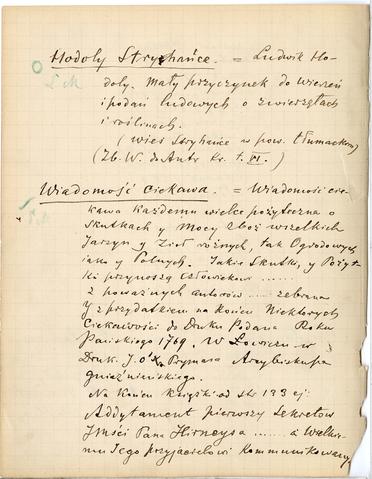 Hodoly Stryhańce. = Ludwik Ho-
doly. Mały przyczynek do wierzeń
i podań ludowych o zwierzętach
i roślinach.
(wieś Stryhańce w pow. Tłumackim)
(Zb. W. do Antr. Kr. t. VI.)
Wiadomość Ciekawa. = Wiadomość cie-
kawa każdemu wielce pożyteczna o
Skutkach y Mocy Zboż wszelkich
Jarzyn y Zioł różnych, tak Ogrodowych
iako y Polnych. Jakie Skutki, y Pożyt-
ki przynoszą człowiekow ......
z poważnych autorow ...... zebrana
y z przydatkiem na końcu Niektorych
Ciekawości do Druku Podana Roku
Pańskiego 1769. W Łowiczu w
Druk. J. O. X. Prymasa Arcybiskupa
gnieźnieńskiego.
Na końcu książki od str 133 ej:
Addytament pierwszy Sekretow
Jmści Pana Hirneysa ....... a Wielkie-
mu Jego przyjacielowi kommunikowany